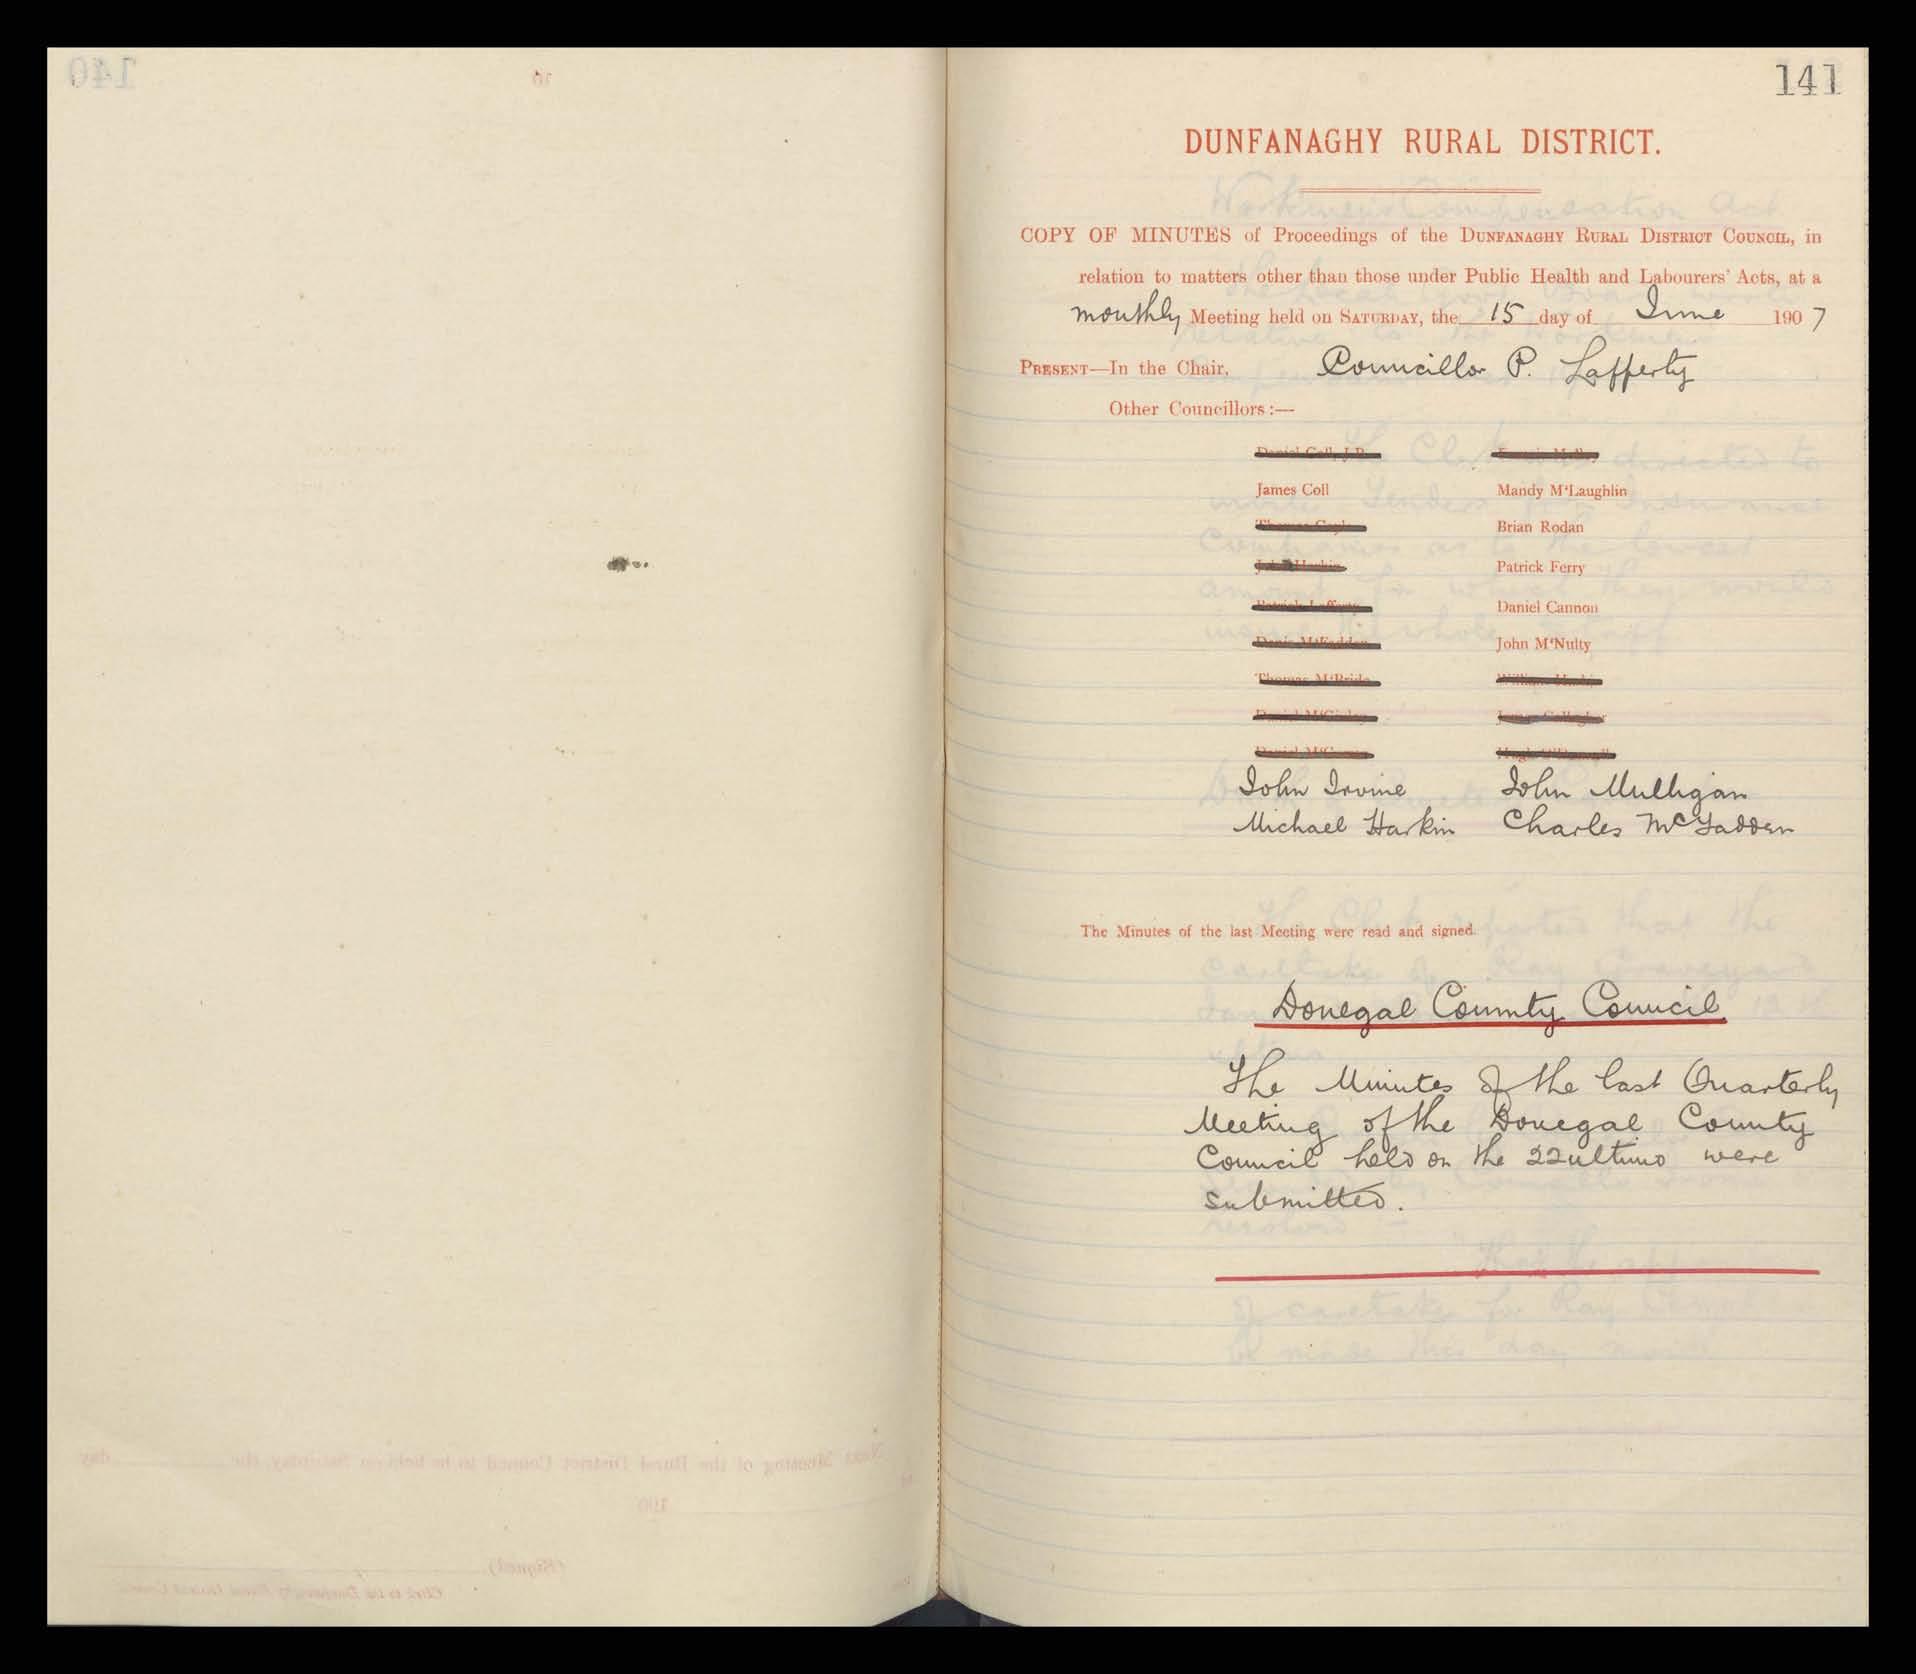 141
DUNFANAGHY RURAL DISTRICT.
COPY OF MINUTES of Proceedings of the DUNFANAGHY RURAL DISTRICT COUNCIL, in
relation to matters other than those under Public Health and Labourers' Acts, at a
monthly Meeting held on SATURDAY, the 15 day of June 1907
PRESENT—In the Chair, Councillor P. Lafferty
Other Councillors:—
James Coll Mandy M'Laughlin
Brian Rodan
Patrick Ferry
Daniel Cannon
John M'Nulty
John Irvine John Mulligan
Michael Harkin Charles McFadden
The Minutes of the last Meeting were read and signed.
Donegal County Council
The Minutes of the last Quarterly
Meeting of the Donegal County
Council held on the 22 ultimo were
submitted.